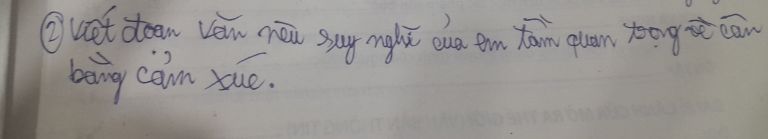 ② Viết đoạn văn nêu suy nghĩ của em tầm quan trọng về cân
bằng cảm xúc.